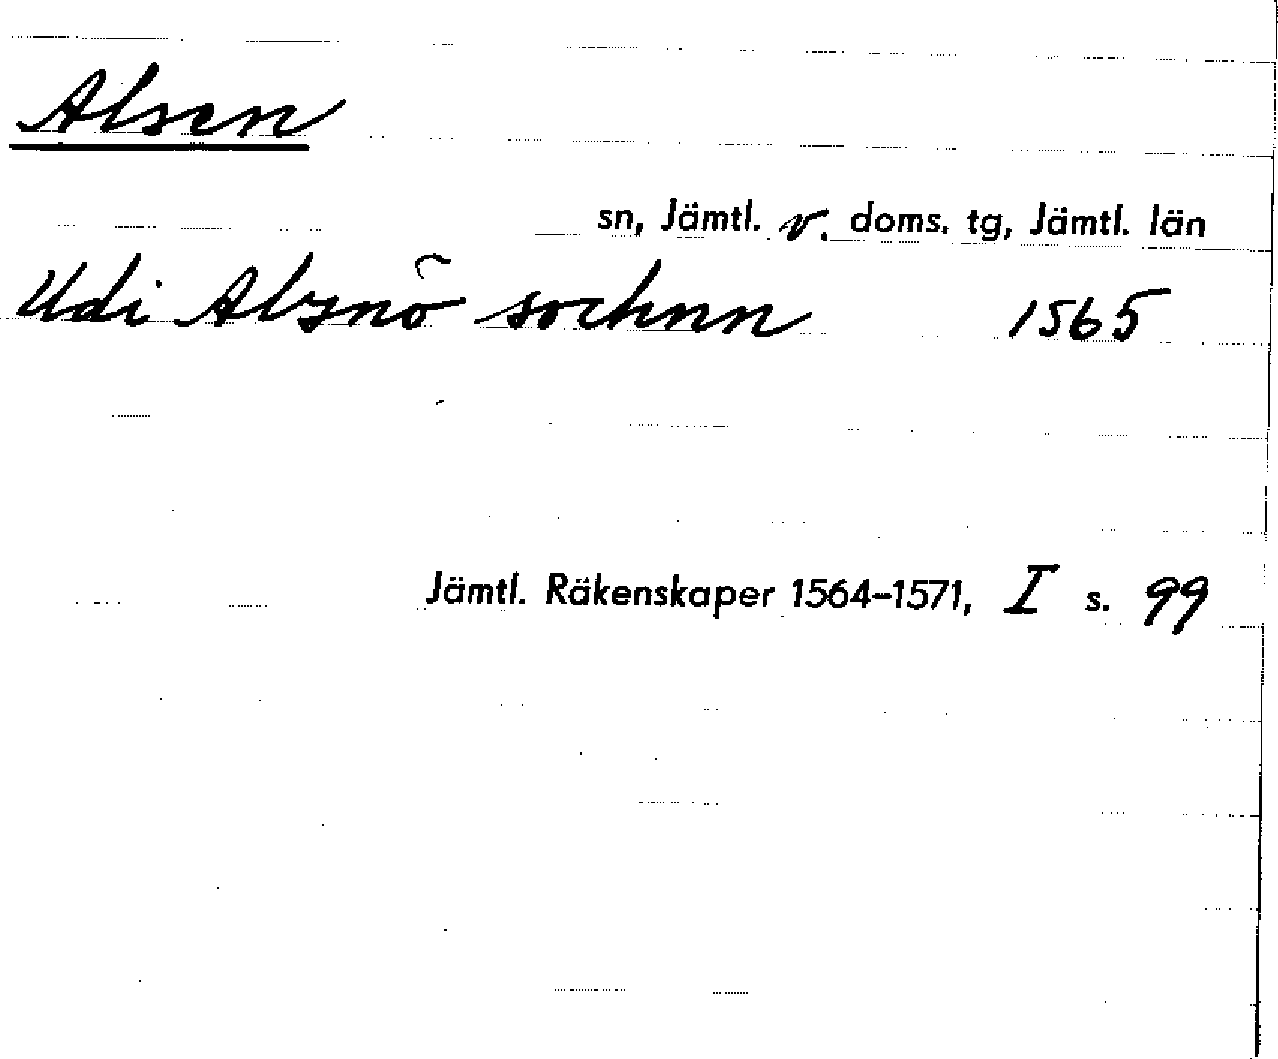 Alsen
sn, Jämtl. v. doms. tg, Jämtl. län
Udi Alsnö sochnn 1565
Jämtl. Räkenskaper 1564-1571, I s. 99